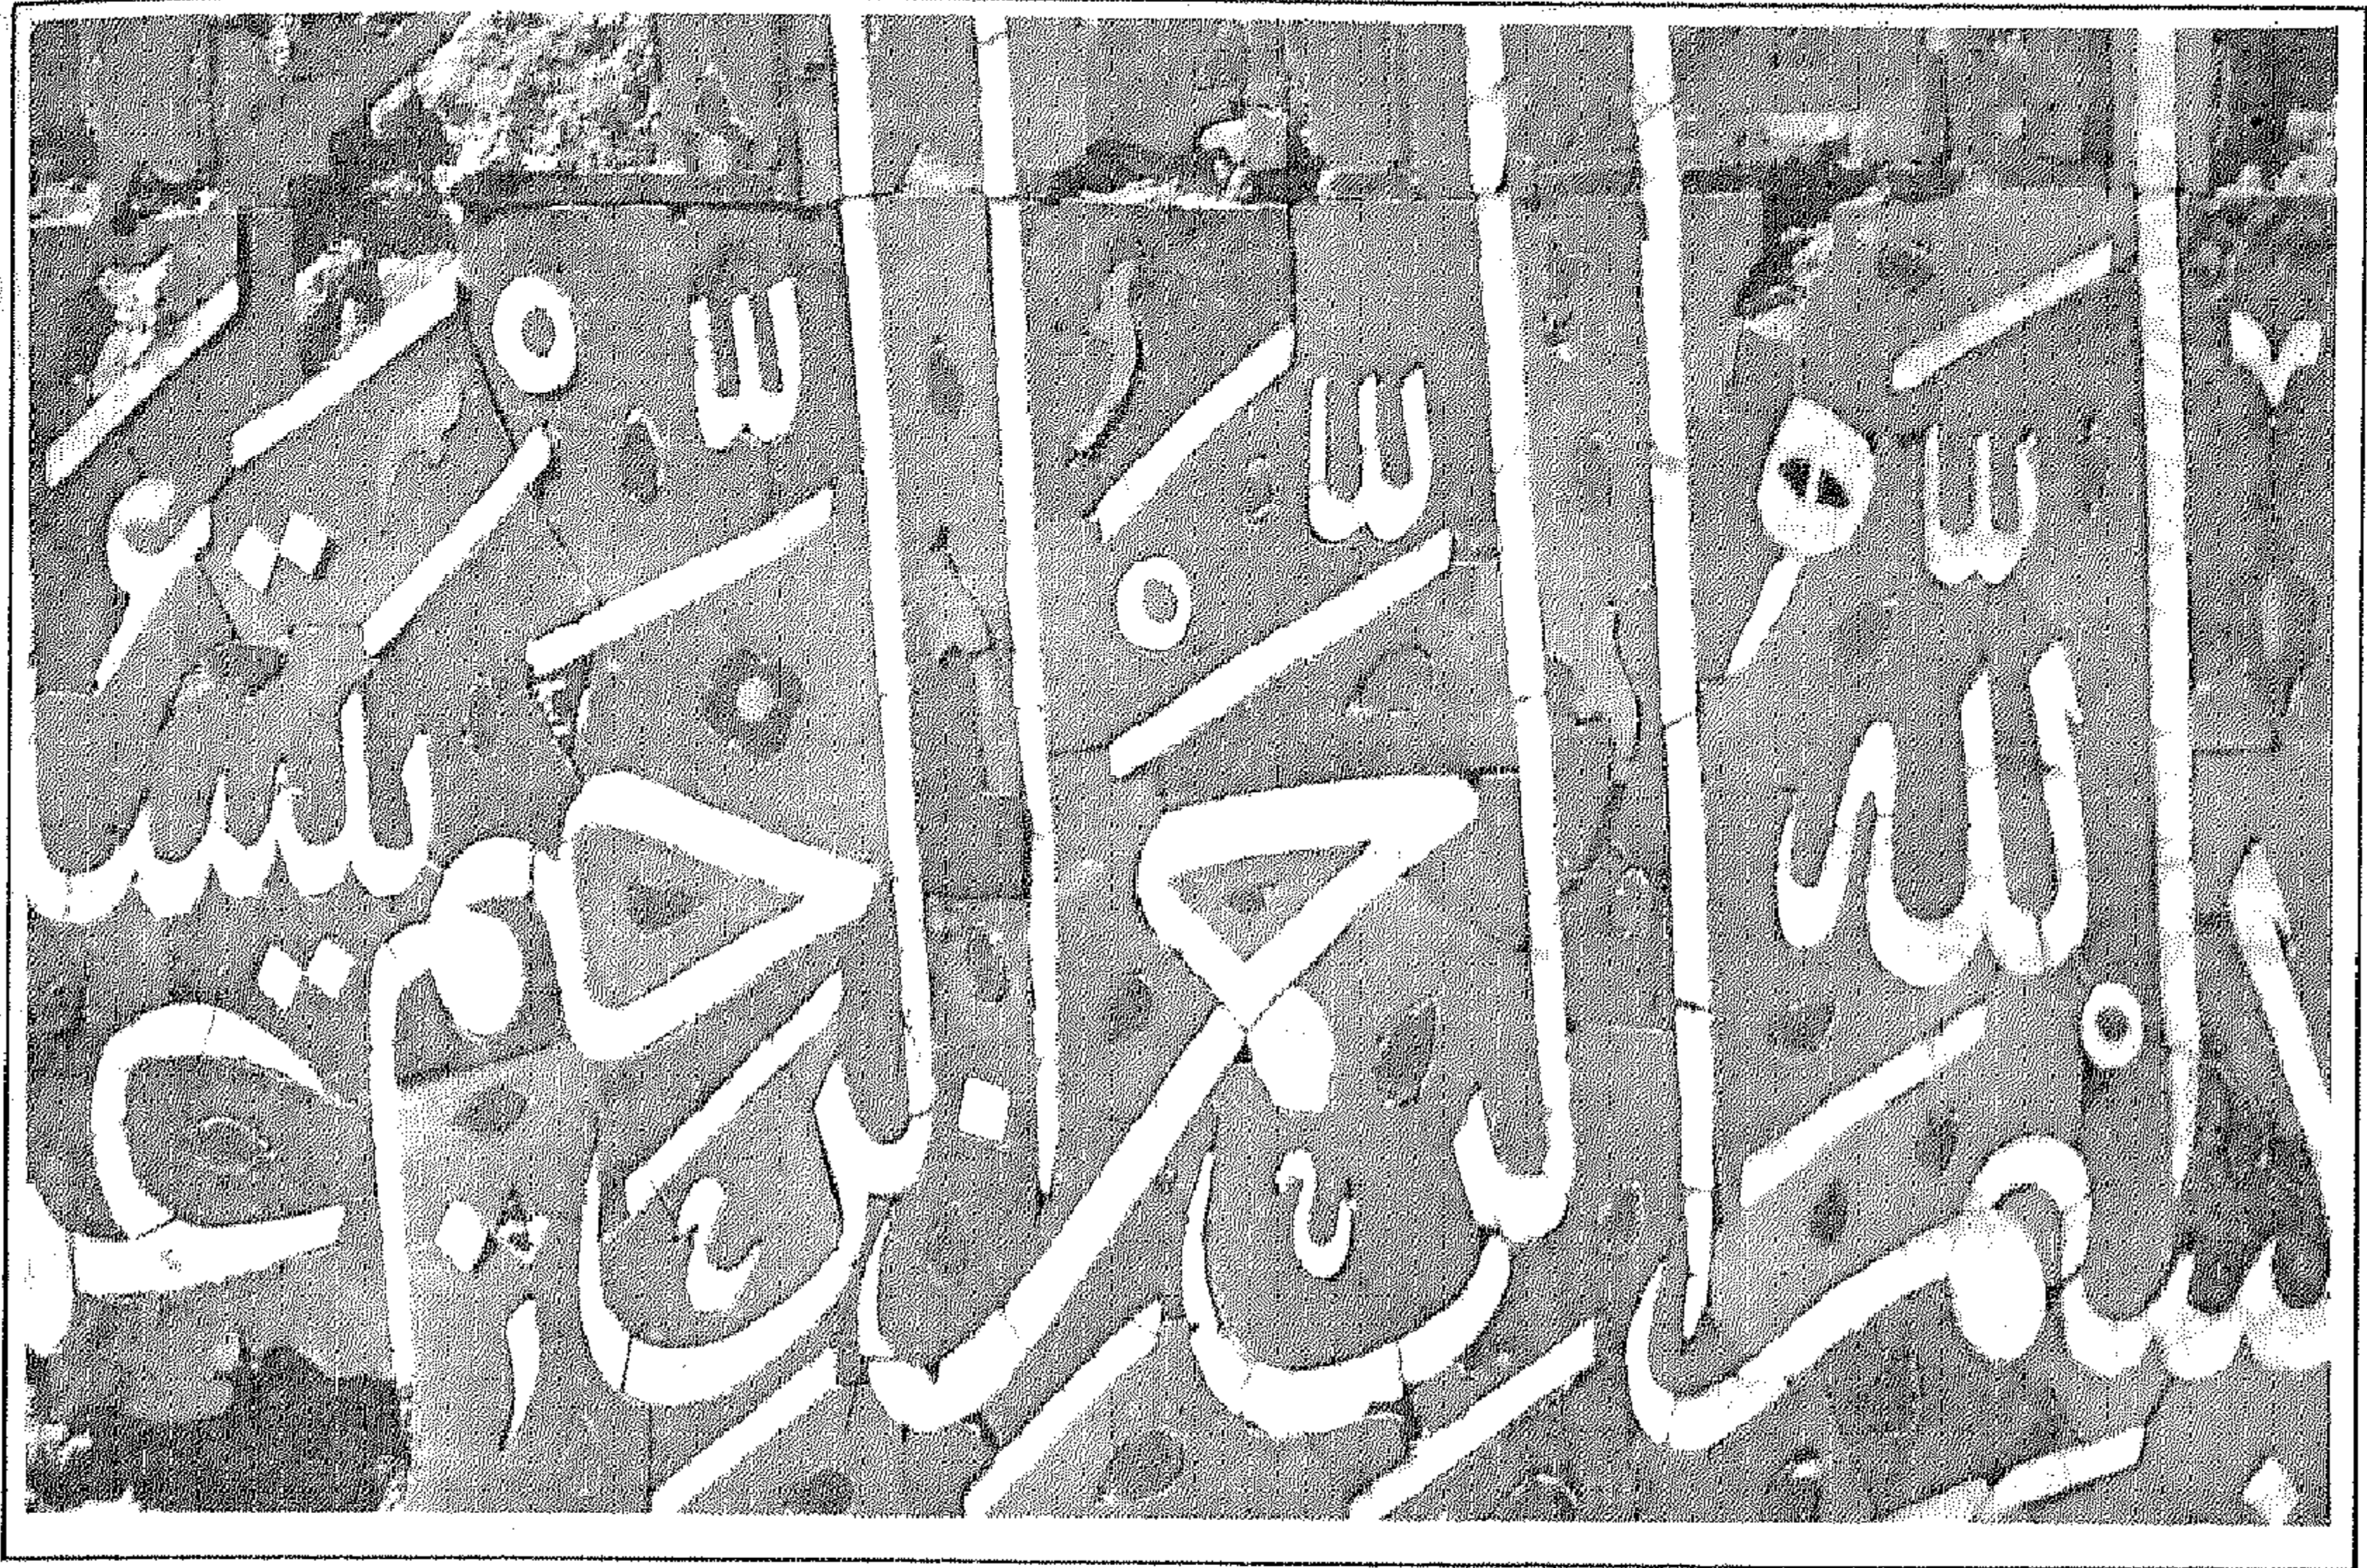 بِسْمِ اللَّهِ الرَّحْمَنِ الرَّحِيمِ عَمَّ